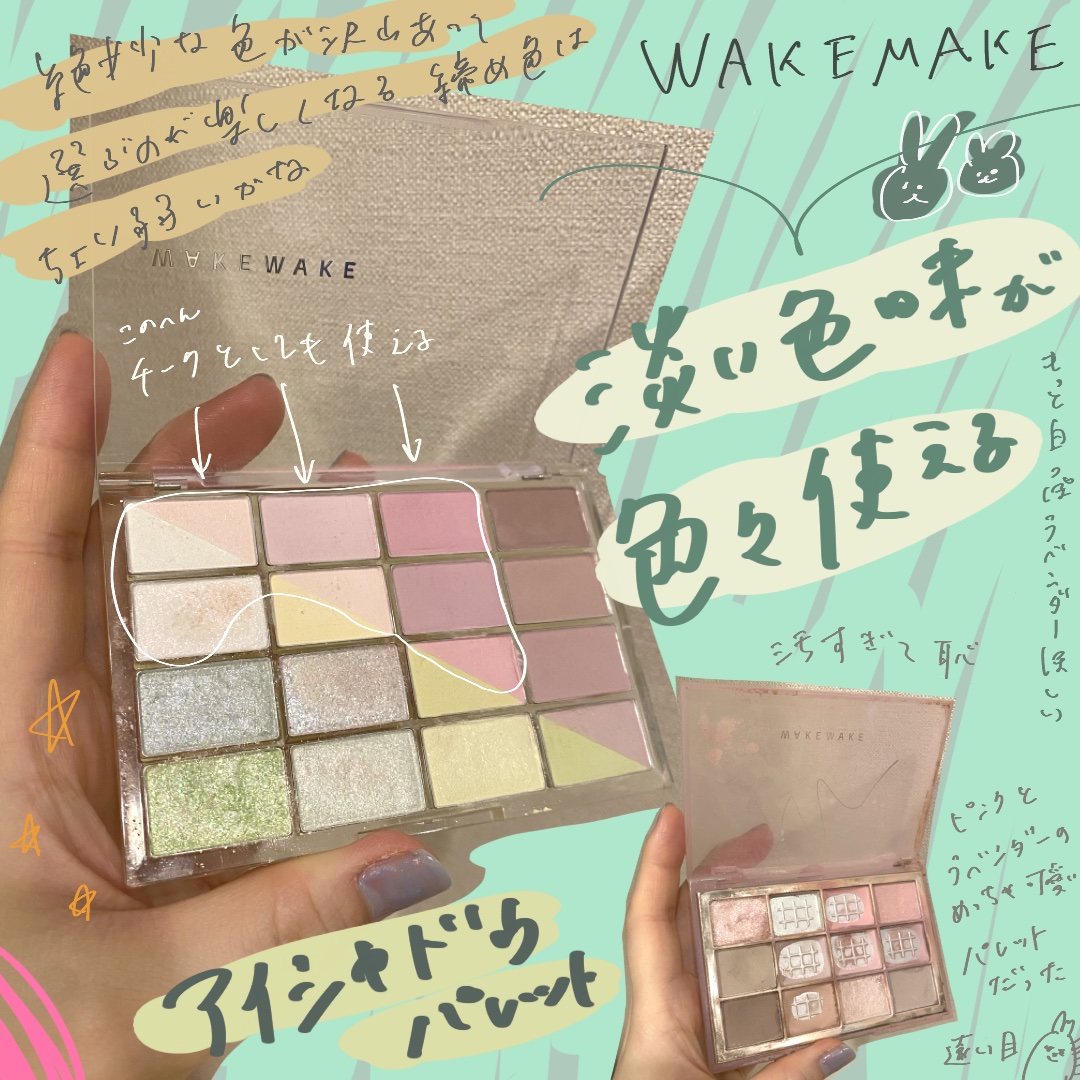 絶妙な色が沢山あって
選ぶのが楽しくなる 締め色は
ちょい弱いかな
WAKEMAKE
WAKEWAKE
このへん
チークとしても使える
淡い色味が
色々使える
もっと白っぽラベンダーほしい
汚すぎて恥
WAKEWAKE
ピンクと
ラベンダーの
めっちゃ可愛い
パレット
だった
遠い目
アイシャドウ
パレット